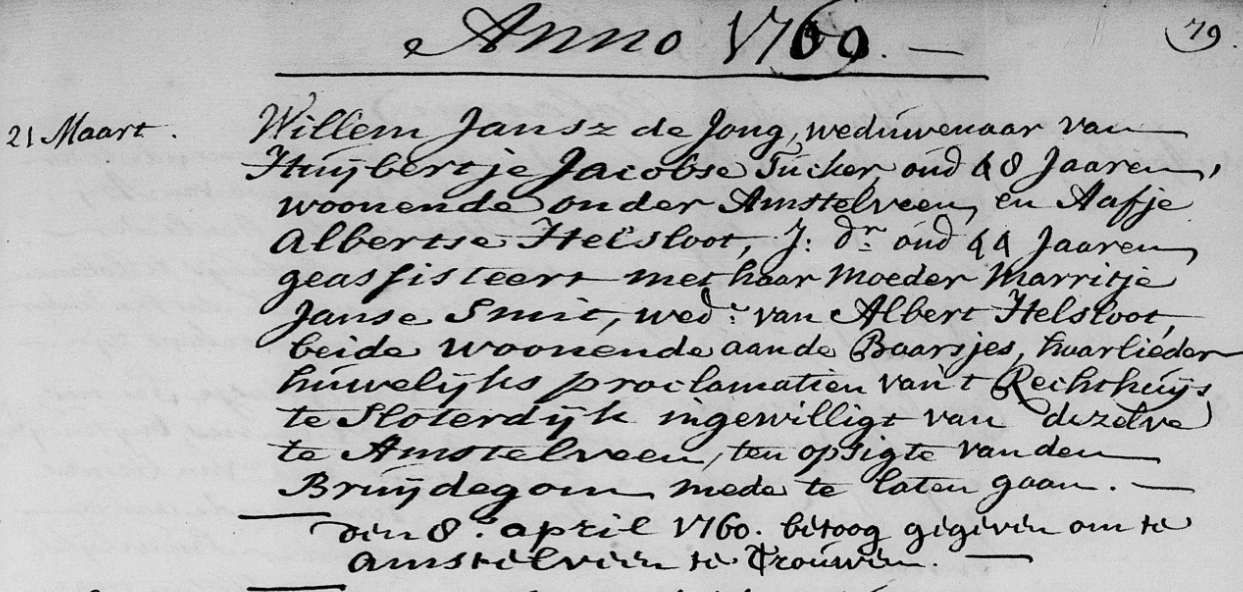 Anno 1760. —
79.
21 Maart.
Willem Jansz de Jong, weduwenaar van
Huijbertje Jacobse Tucker, oud 48 Jaaren,
woonende onder Amstelveen, en Aafje
Albertse Helsloot, J: dr oud 44 Jaaren,
geassisteert met haar Moeder Marritje
Janse Smit, wed: van Albert Helsloot,
beide woonende aan de Baarsjes, haarlieder
huwelijks proclamatien van 't Rechthuijs
te Sloterdijk ingewilligt van dezelve
te Amstelveen, ten opsigte van den
Bruijdegom mede te laten gaan. —
den 8. april 1760. betoog gegeven om te
Amstelveen te Trouwen. —